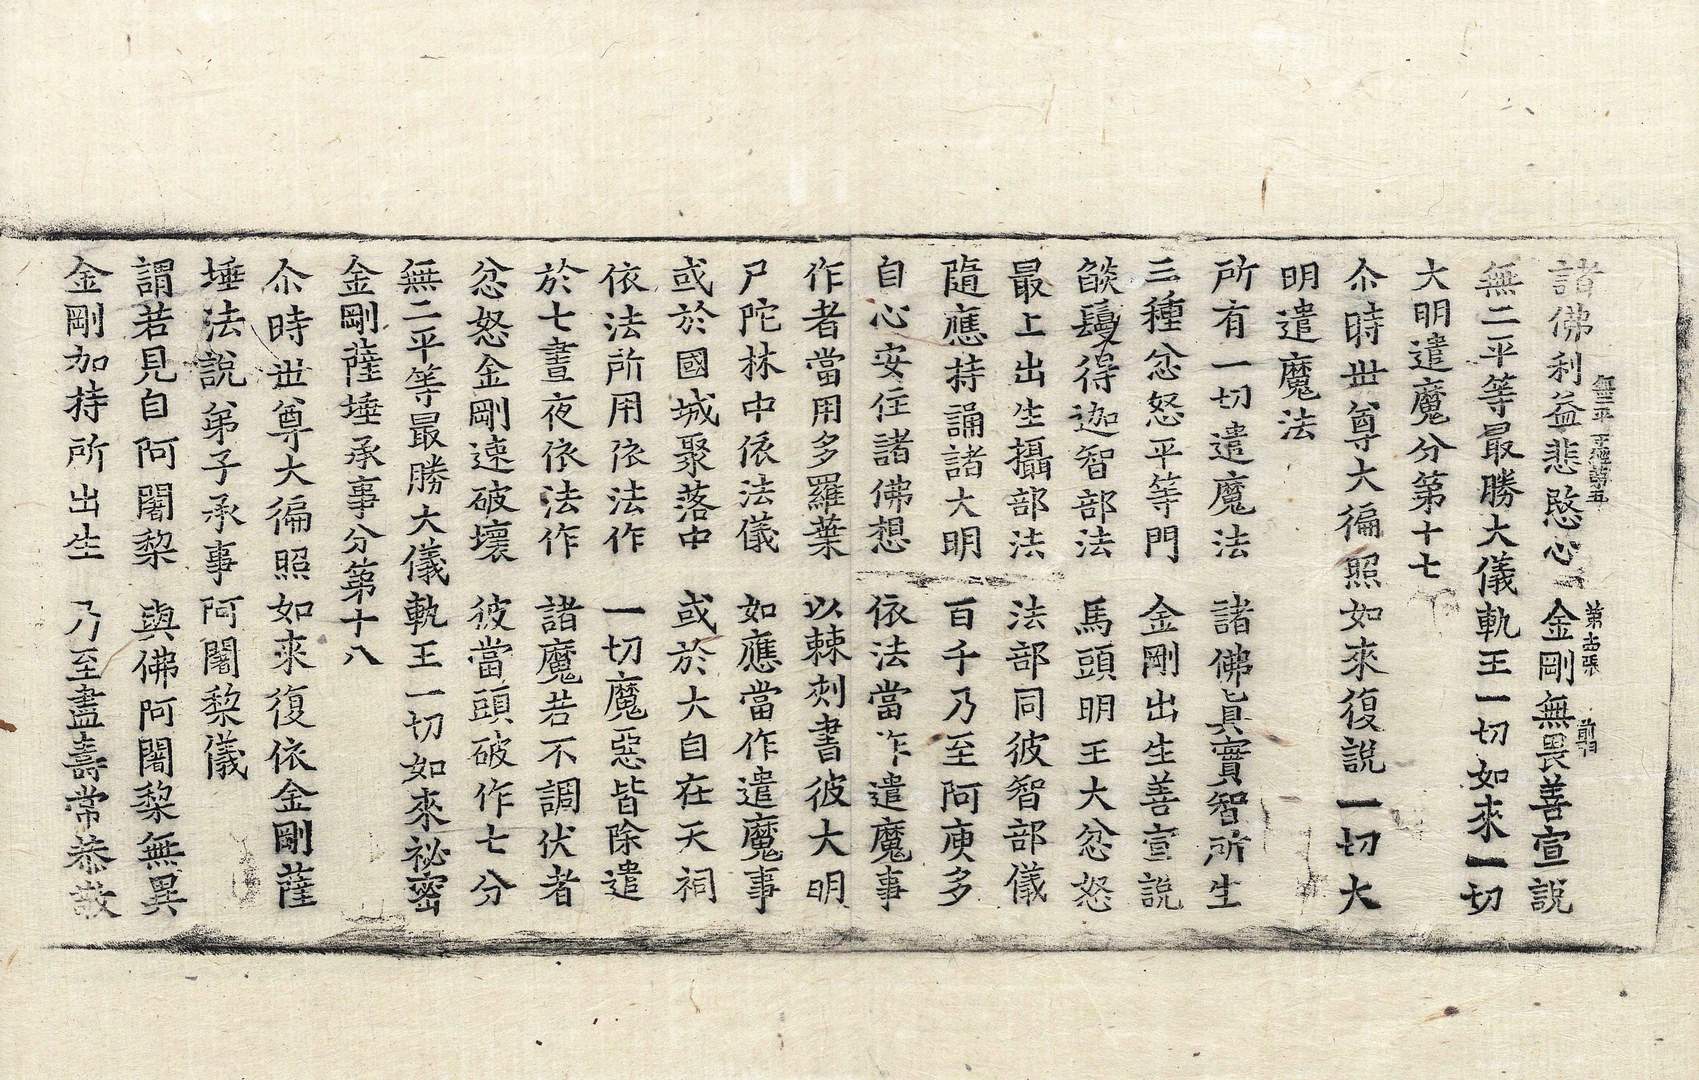 無二平 ... 卷第五 第 ... 張 前
諸佛利益悲愍心 金剛無畏善宣說
無二平等最勝大儀軌王一切如來一切
大明遣魔分第十七
尒時世尊大徧照如來復說一切大
明遣魔法
所有一切遣魔法 諸佛眞實智所生
三種忿怒平等門 金剛出生善宣說
燄鬘得迦智部法 馬頭明王大忿怒
最上出生攝部法 法部同彼智部儀
隨應持誦諸大明 百千乃至阿庾多
自心安住諸佛想 依法當作遣魔事
作者當用多羅葉 以棘刺書彼大明
尸陀林中依法儀 如應當作遣魔事
或於國城聚落中 或於大自在天祠
依法所用依法作 一切魔惡皆除遣
於七晝夜依法作 諸魔若不調伏者
忿怒金剛速破壞 彼當頭破作七分
無二平等最勝大儀軌王一切如來祕密
金剛薩埵承事分第十八
尒時世尊大徧照如來復依金剛薩
埵法說弟子承事阿闍梨儀
謂若見自阿闍梨 與佛阿闍梨無異
金剛加持所出生 乃至盡壽常恭敬